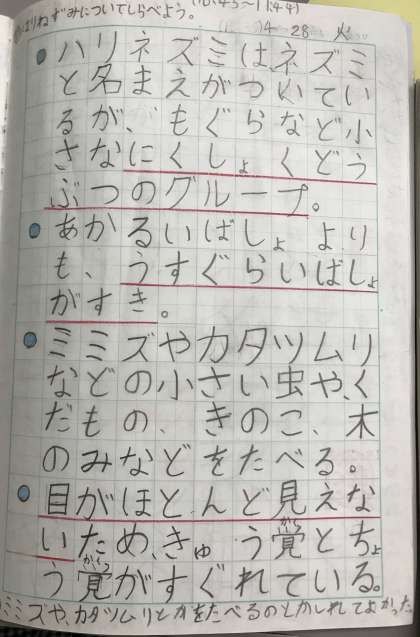 はりねずみについてしらべよう。
4-28 火
ハリネズミは、ネズミ
と名まえがついてい
るが、もぐらなど小
さなにくしょくどう
ぶつのグループ。
あかるいばしょより
も、うすぐらいばしょ
がすき。
ミミズやカタツムリ
などの小さい虫や、く
だもの、きのこ、木
のみなどをたべる。
目がほとんど見えな
いため、きゅう覚とち
ょう覚がすぐれている。
ミミズや、カタツムリとかをたべるのとかしれてよかった。